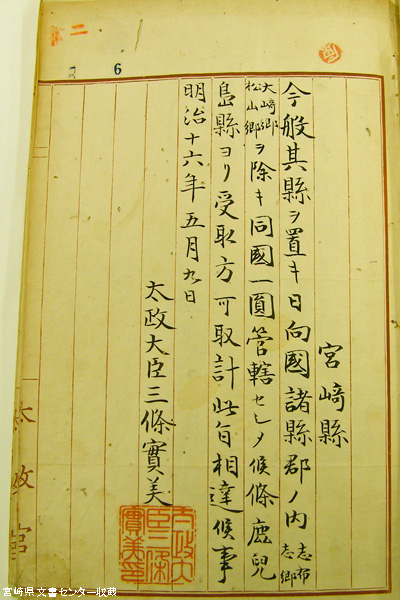 二
6
宮崎縣
今般其縣ヲ置キ日向國諸縣郡ノ内志布志郷
大崎郷松山郷ヲ除キ同國一圓管轄セシメ候條鹿兒
島縣ヨリ受取方可取計此旨相達候事
明治十六年五月九日
太政大臣三條實美
太政大臣三條實美印
太政官
宮崎県文書センター収蔵